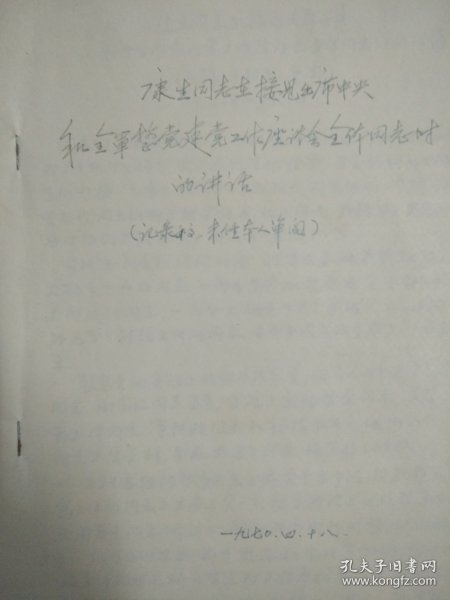 康生同志在接见出席中央
和全军整党建党工作座谈会全体同志时
的讲话
(记录稿、未经本人审阅)
一九七〇.四.十八.
孔夫子旧书网
www.kongfz.com